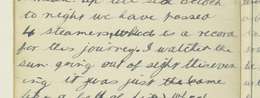 to night we have passed
4 steamers which is a record
for this journey. I watched the
sun going out of sight this even
ing it was just the same